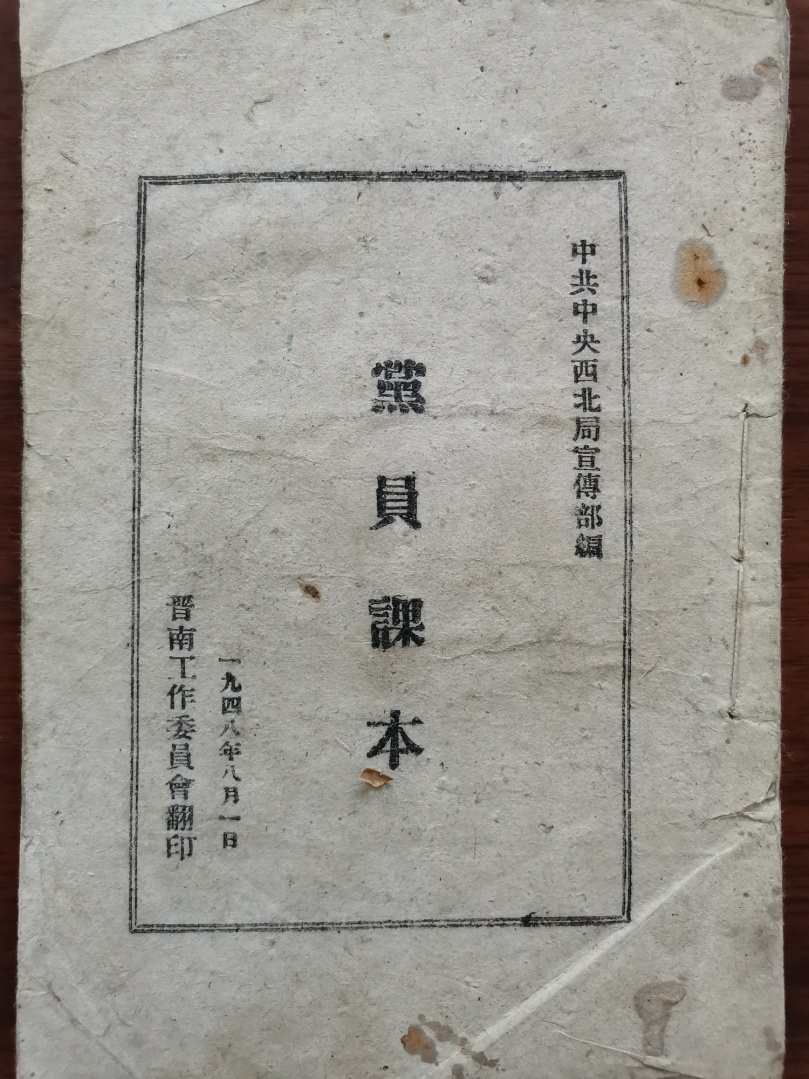 中共中央西北局宣傳部編
黨員課本
一九四八年八月一日
晋南工作委員會翻印